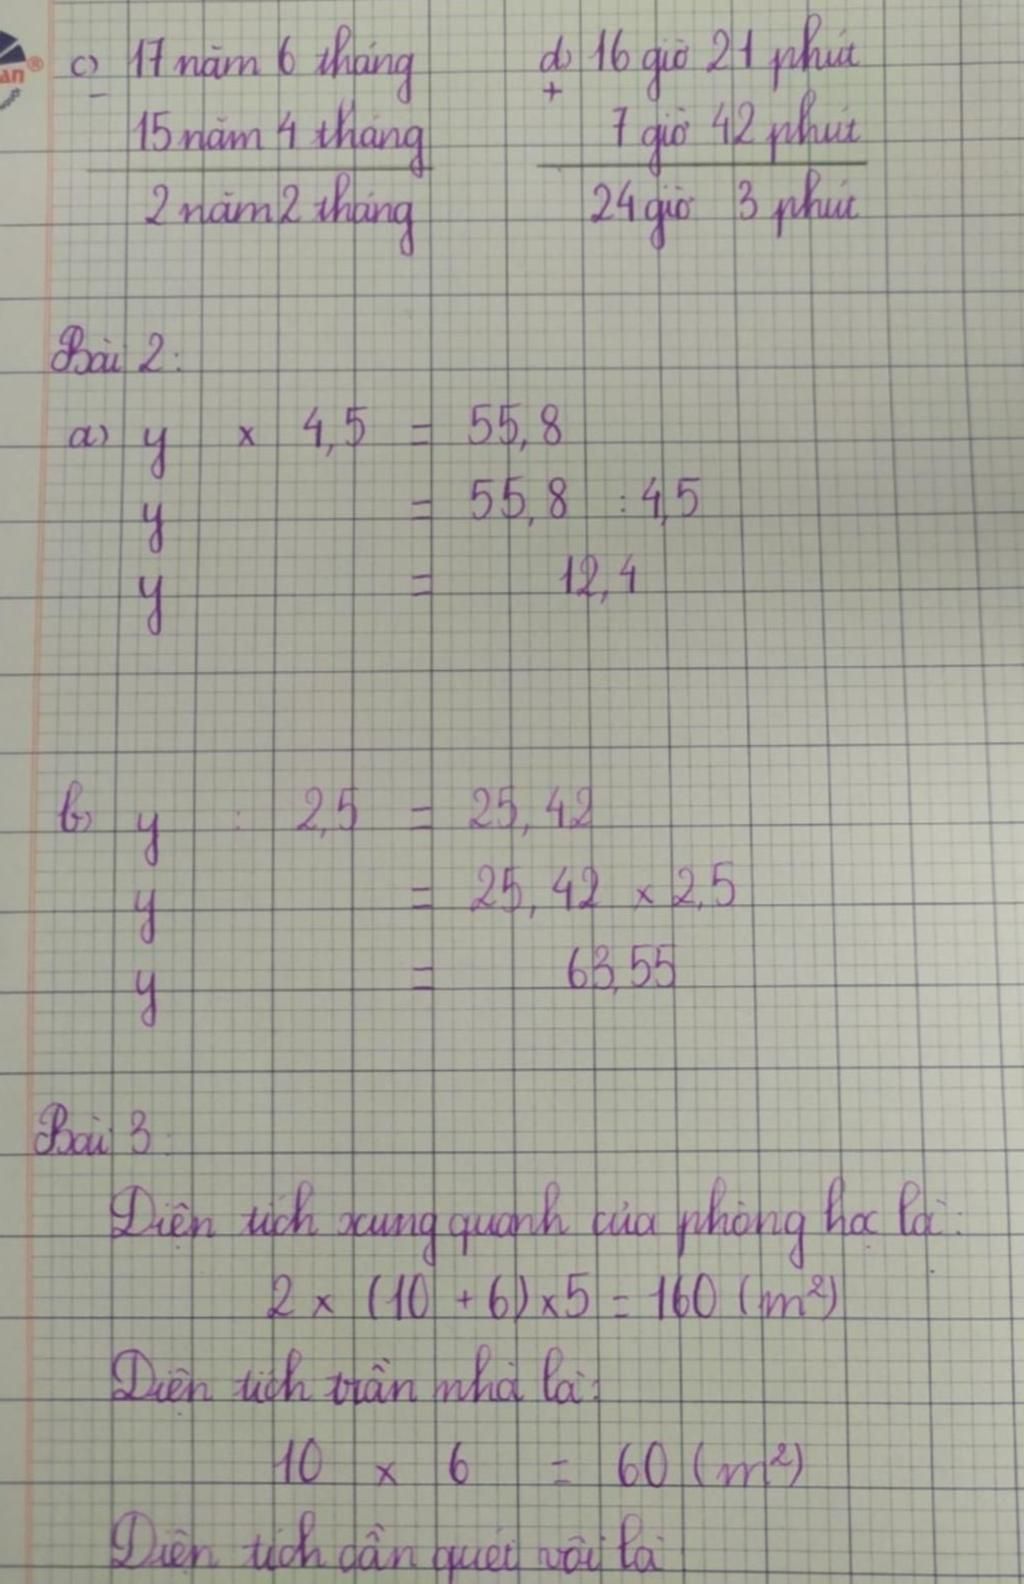 an®
c) 17 năm 6 tháng
-
15 năm 4 tháng
2 năm 2 tháng
d) 16 giờ 21 phút
+
7 giờ 42 phút
24 giờ 3 phút
Bài 2:
a) y × 4,5 = 55,8
y = 55,8 : 4,5
y = 12,4
b) y : 2,5 = 25,42
y = 25,42 × 2,5
y = 63,55
Bài 3:
Diện tích xung quanh của phòng học là:
2 × (10 + 6) × 5 = 160 (m²)
Diện tích trần nhà là:
10 × 6 = 60 (m²)
Diện tích cần quét vôi là